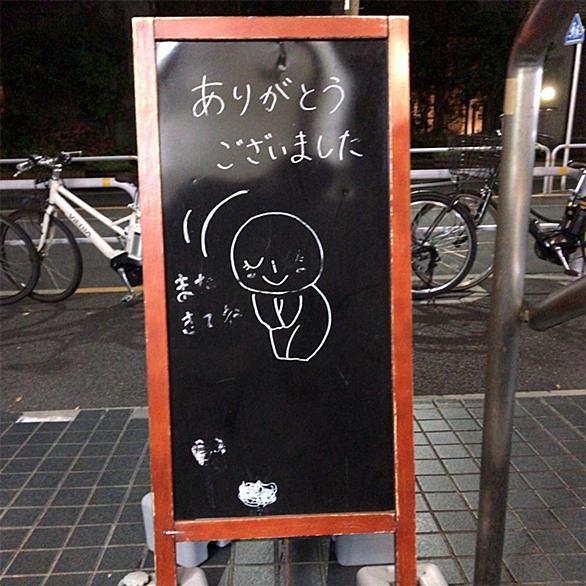 ありがとう
ございました
また
きてね